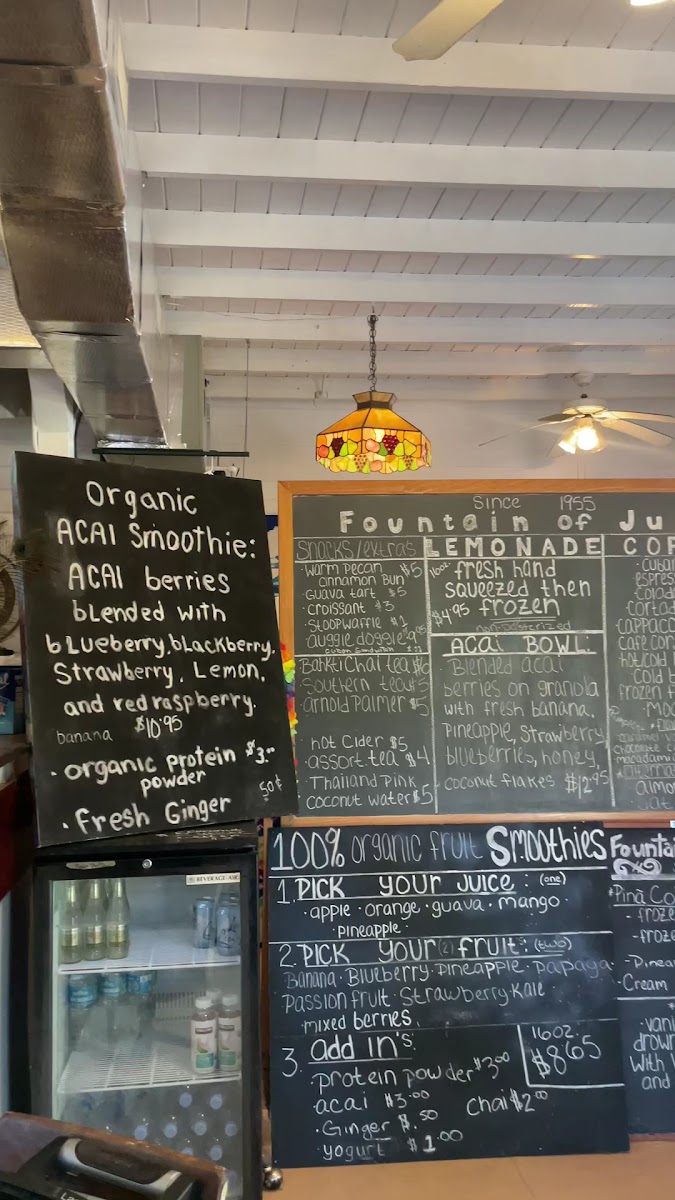 Organic
ACAI Smoothie:
ACAI berries
blended with
blueberry, blackberry,
Strawberry, Lemon,
and red raspberry.
banana $10.95
· organic protein $3.00
powder
· Fresh Ginger 50¢
Since 1955
Fountain of Ju
Snacks/extras
· Warm pecan $5
cinnamon Bun
· Guava tart $5
· croissant $3
· Stoopwaffle $2
auggie doggie
Bahkti Chai tea $6
Southern tea $5
arnold Palmer $5
hot Cider $5
· assort. tea $4
· Thailand Pink
coconut water $5
LEMONADE
16oz fresh hand
squeezed then
$4.95 frozen
ACai BOWL:
Blended acai
berries on granola
with fresh banana,
Pineapple, Strawberry,
blueberries, honey,
coconut flakes $12.95
COF
· cuban
espres
· colad
· cortad
· cappacc
cafe con
hot, cold
cold b
frozen f
· Moc
almo
oat
BEVERAGE-AIR
100% organic fruit Smoothies
1. PICK your Juice: (one)
· apple · orange · guava · mango ·
· pineapple ·
2. PICK your (2) fruit: (two)
Banana · Blueberry · pineapple · papaya ·
passion fruit · Strawberry · kale ·
· mixed berries.
3. add in's
· protein powder $3.00
acai $3.00
chai $2.00
· Ginger $.50
yogurt $1.00
16oz.
$8.65
Founta
Pina Co
- froze
- froze
- Pinea
· Cream
· vani
drow
with w
and